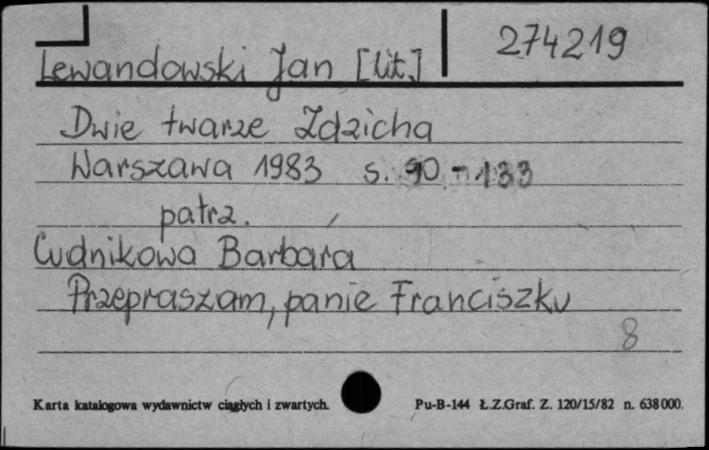 Lewandowski Jan [lit.] 274219
Dwie twarze Zdzicha
Warszawa 1983 s. 90-133
patrz.
Cudnikowa Barbara
Przepraszam, panie Franciszku
8
Karta katalogowa wydawnictw ciągłych i zwartych. Pu-B-144 Ł.Z.Graf. Z. 120/15/82 n. 638000.